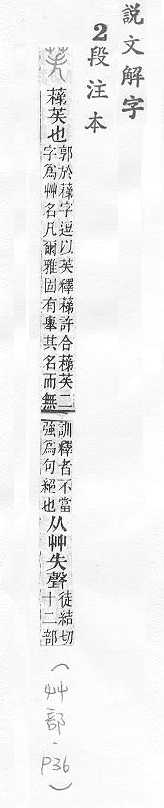 説文解字
2段注本
蕛苵也
郭於蕛字逗以苵釋蕛許合蕛苵二
字爲艸名凡爾雅固有舉其名而無
訓釋者不當
強爲句絕也
从艸失聲
徒結切
十二部
(艸部.P36)